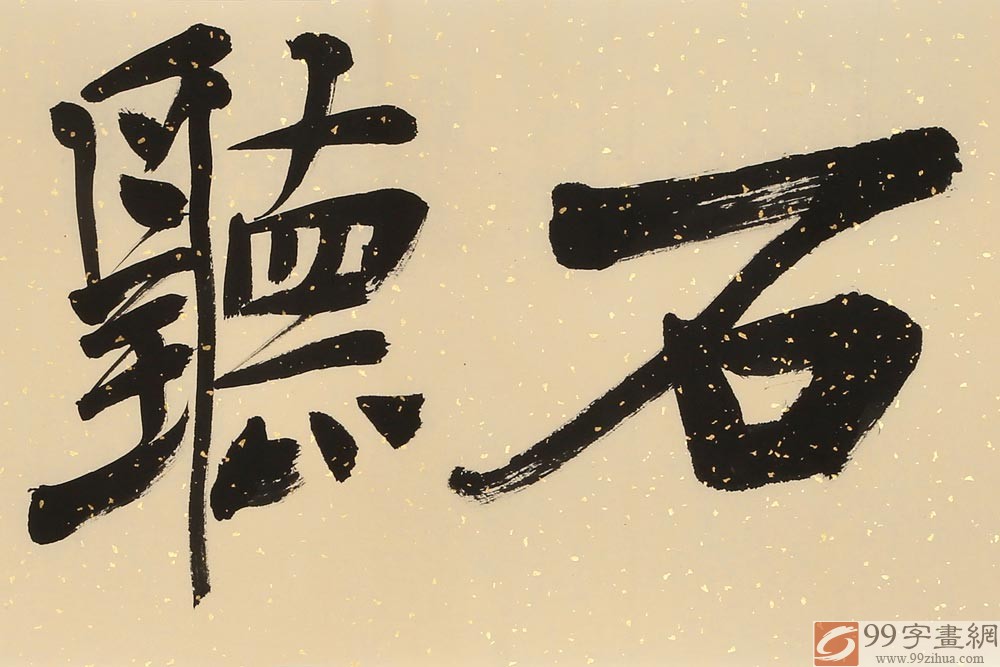 石聽
99字畫網
www.99zihua.com